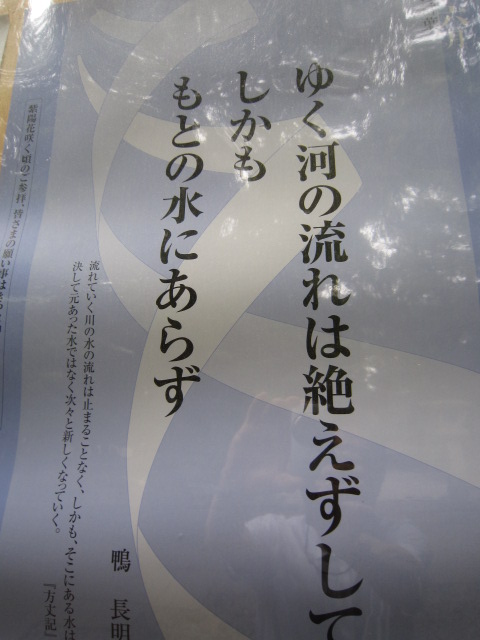 ゆく河の流れは絶えずして
しかも
もとの水にあらず
鴨 長明
『方丈記』
流れていく川の水の流れは止まることなく、しかも、そこにある水は
決して元あった水ではなく次々と新しくなっていく。
紫陽花咲く頃のご参拝、皆さまの願い事は